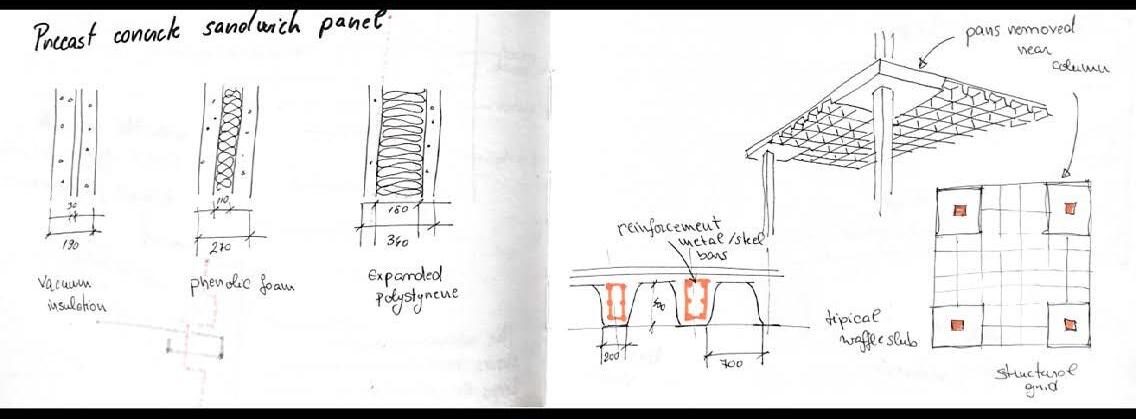 Precast concrete sandwich panel
30
190
Vacuum
insulation
110
270
phenolic foam
180
340
Expanded
polystyrene
pans removed
near
column
reinforcement
metal/steel
bars
200
700
tipical
waffle slab
structural
grid